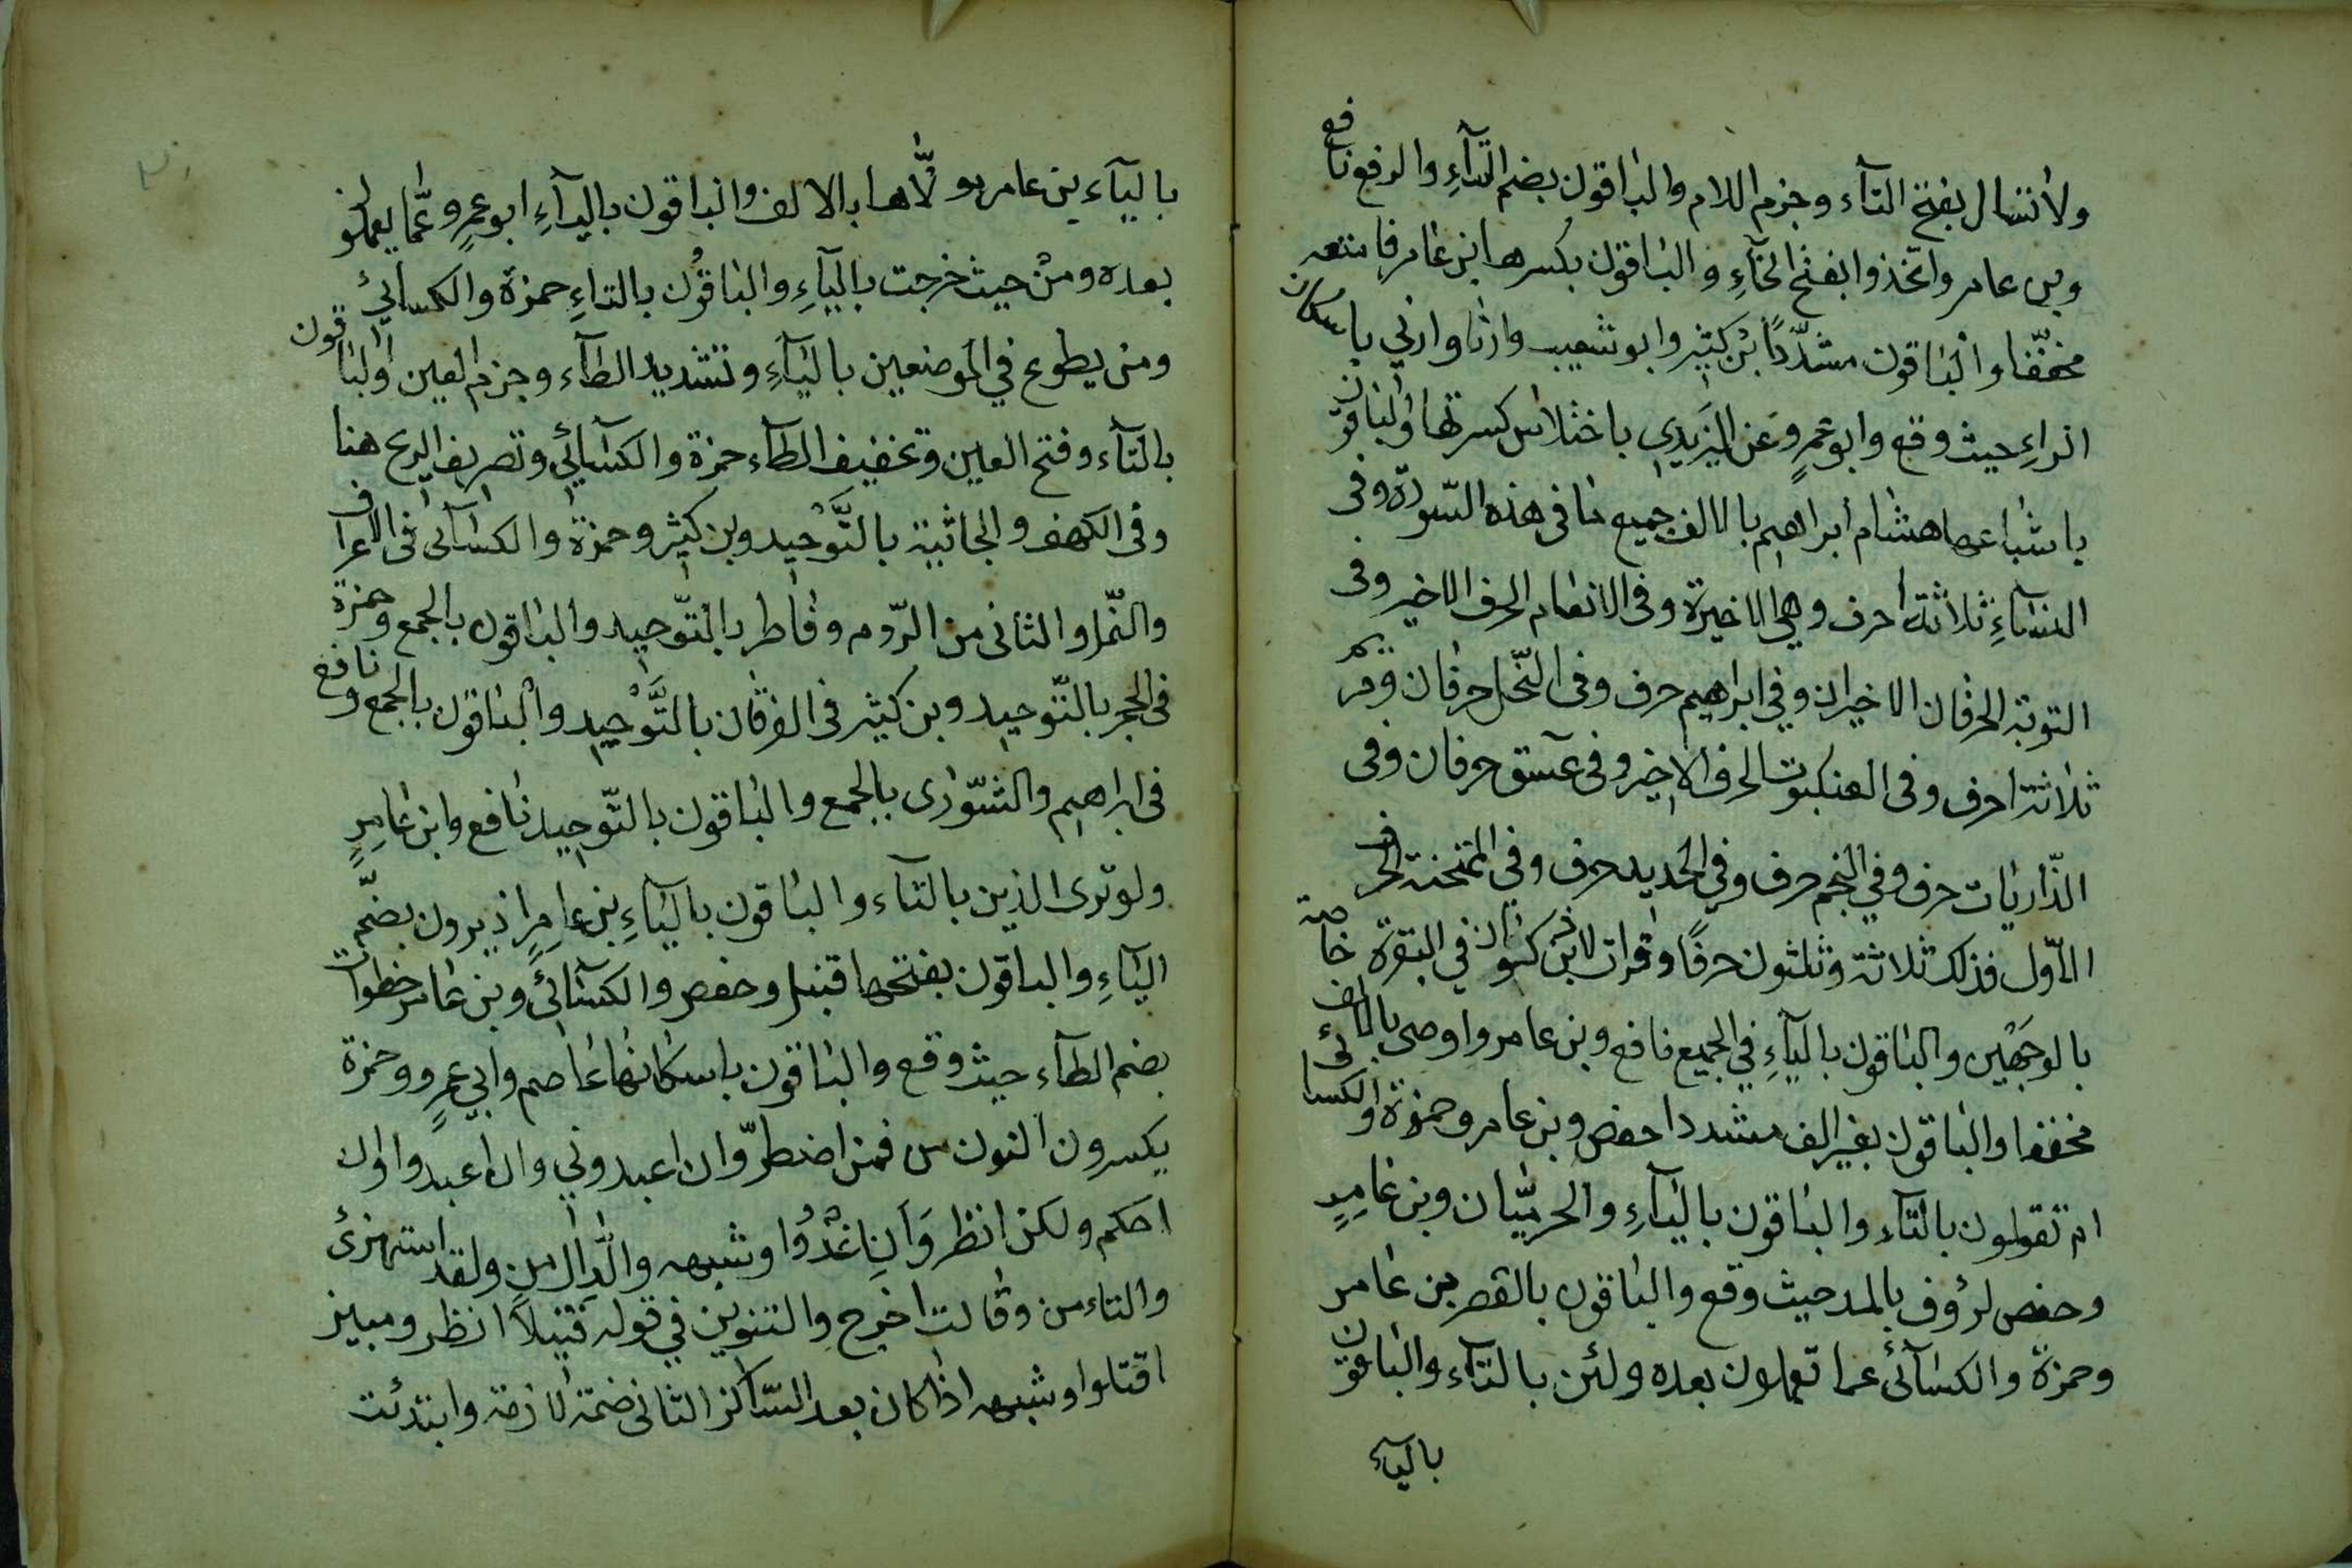 ولا تسال بفتح التآء وجزم اللام والباقون بضم التآءِ والرفع نافع
وبن عامر واتخذوا بفتح الخآءِ والباقون بكسرها ابن عامر فامتعه
مخففا والباقون مشدّدًا بن كثير وابو شعيب وارنا وارني باسكان
الراءِ حيث وقع وابو عمرٍو عن اليزيدي باختلاس كسرتها والباقون
باشباعها هشام ابراهيم بالالف جميع ما في هذه السّورة وفى
النسآءِ ثلاثة احرف وهي الاخيرة وفى الانعام الحرف الاخير وفى
التوبة الحرفان الاخيران وفي ابراهيم حرف وفى النّحل حرفان ومريم
ثلاثة احرف وفى العنكبوت الحرف الاخير وفى عسق حرفان وفى
الذّاريات حرف وفي النجم حرف وفي الحديد حرف وفي الممتحنة الحرف
الاوّل فذلك ثلاثة وثلثون حرفًا وقرات لابن ذكوان في البقرة خاصة
بالوجهين والباقون باليآءِ في الجميع نافع وبن عامر واوصى بالالف
مخففا والباقون بغير الف مشددا حفص وبن عامر وحمزة والكسائى
ام تقولون بالتآء والباقون باليآءِ والحرميّان وبن عامِرٍ
وحفص لرؤف بالمد حيث وقع والباقون بالقصر بن عامر
وحمزة والكسآئى عما تعملون بعده ولئن بالتآء والباقون
باليآء
باليآء بن عامر مولّاها بالالف والباقون باليآءِ ابو عمرٍو عمّا يعملون
بعده ومن حيث خرجت باليآءِ والباقون بالتاءِ حمزة والكسآئي
ومن يطوع في الموضعين باليآءِ وتشديد الطآء وجزم العين والباقون
بالتآء وفتح العين وتخفيف الطآء حمزة والكسآئي وتصريف الريح هنا
وفى الكهف والجاثية بالتَّوْحيد وبن كثير وحمزة والكسآئى فى الاعراف
والنّمل والثانى من الرّوم وفاطر بالتّوحيد والباقون بالجمع وحمزة
فى الحجر بالتّوحيد وبن كثير فى الفرقان بالتَّوْحيد والباقون بالجمع ونافع
فى ابراهيم والشّورى بالجمع والباقون بالتّوحيد نافع وابن عامِرٍ
ولو ترى الذين بالتآء والباقون باليآءِ بن عامِرٍ اذ يرون بضمّ
اليآءِ والباقون بفتحها قنبل وحفص والكسآئي وبن عامر خطوات
بضم الطآء حيث وقع والباقون باسكانها عاصم وابي عمرٍو وحمزة
يكسرون النون من فمن اضطرّ وان اعبدوني وان اعبدوا وان
احكم ولكن انظر وَان اغْدُوْا وشبهه والدّال من ولقد استهزئ
والتاء من وقالت اخرج والتنوين في قوله فتيلًا انظر ومبين
اقتلوا وشبهه اذا كان بعد السّاكن الثانى ضمة لازمة وابتدئت